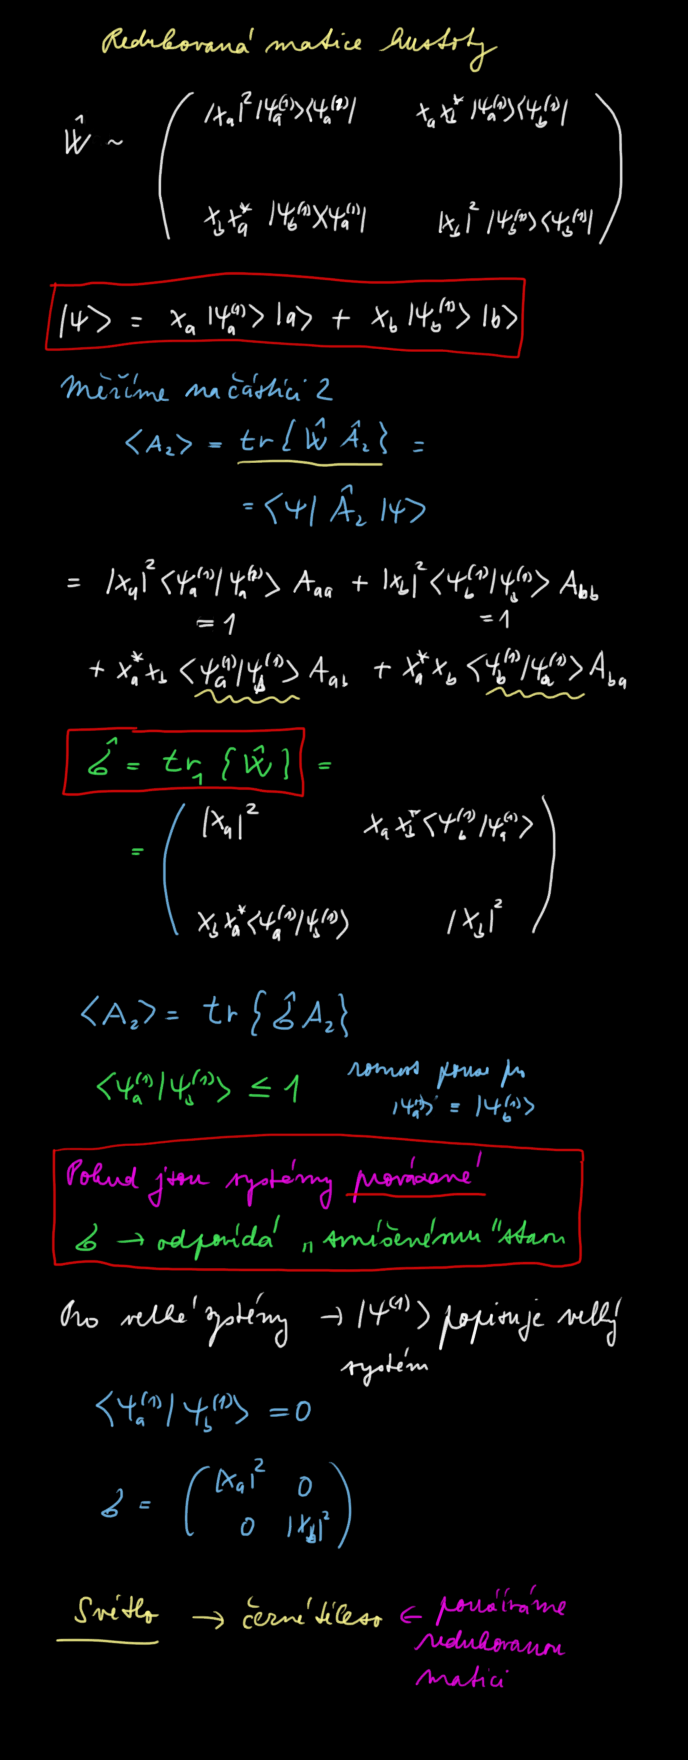 Redukovaná matice hustoty
|x_a|² |ψ_a^(1)><ψ_a^(1)| x_a x_b^* |ψ_a^(1)><ψ_b^(1)|
Ŵ ~
x_b x_a^* |ψ_b^(1)><ψ_a^(1)| |x_b|² |ψ_b^(1)><ψ_b^(1)|
|ψ> = x_a |ψ_a^(1)> |a> + x_b |ψ_b^(1)> |b>
Měříme na částici 2
<A₂> = tr{ Ŵ Â₂} =
= <ψ| Â₂ |ψ>
= |x_a|² <ψ_a^(1)|ψ_a^(1)> A_aa + |x_b|² <ψ_b^(1)|ψ_b^(1)> A_bb
= 1 = 1
+ x_a^* x_b <ψ_a^(1)|ψ_b^(1)> A_ab + x_a^* x_b <ψ_b^(1)|ψ_a^(1)> A_ba
ρ̂ = tr₁ {Ŵ} =
|x_a|² x_a x_b^* <ψ_b^(1)|ψ_a^(1)>
=
x_b x_a^* <ψ_a^(1)|ψ_b^(1)> |x_b|²
<A₂> = tr{ρ̂ A₂}
<ψ_a^(1)|ψ_b^(1)> ≤ 1 rovnost pouze pro
|ψ_a^(1)> = |ψ_b^(1)>
Pokud jsou systémy provázané
ρ → odpovídá „smíšenému" stavu
Pro velké systémy → |ψ^(1)> popisuje velký
systém
<ψ_a^(1)|ψ_b^(1)> = 0
|x_a|² 0
ρ =
0 |x_b|²
Světlo → černé těleso ← používáme
redukovanou
matici